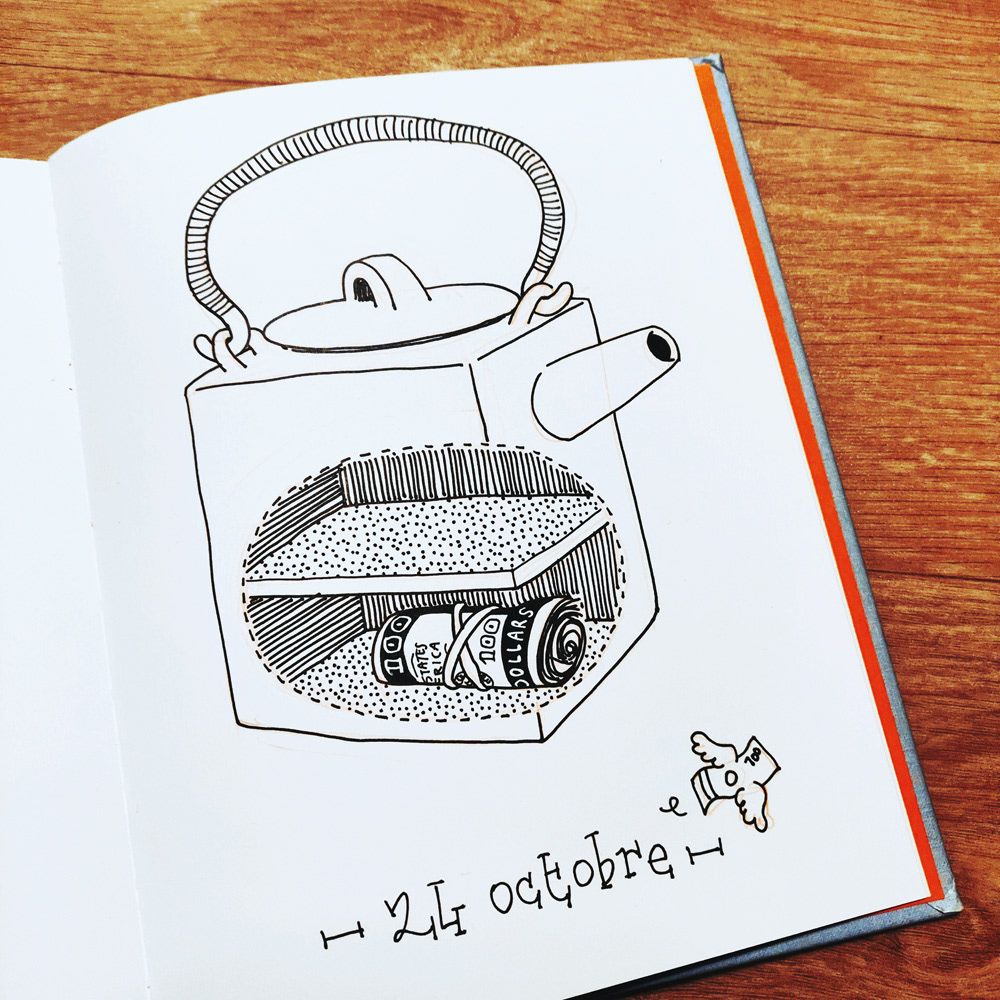 100
TATES
ERICA
100
DOLLARS
100
24 octobre